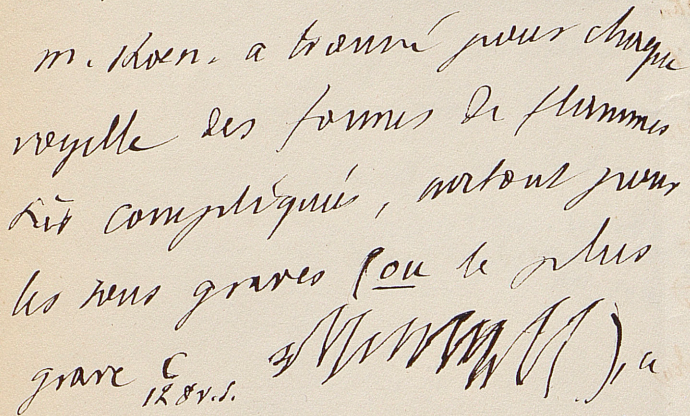 M. Koen. a trouvé pour chaque
voyelle des formes de flammes
très compliqués, surtout pour
les sons graves (ou le plus
grave C ), a
128 v.s.